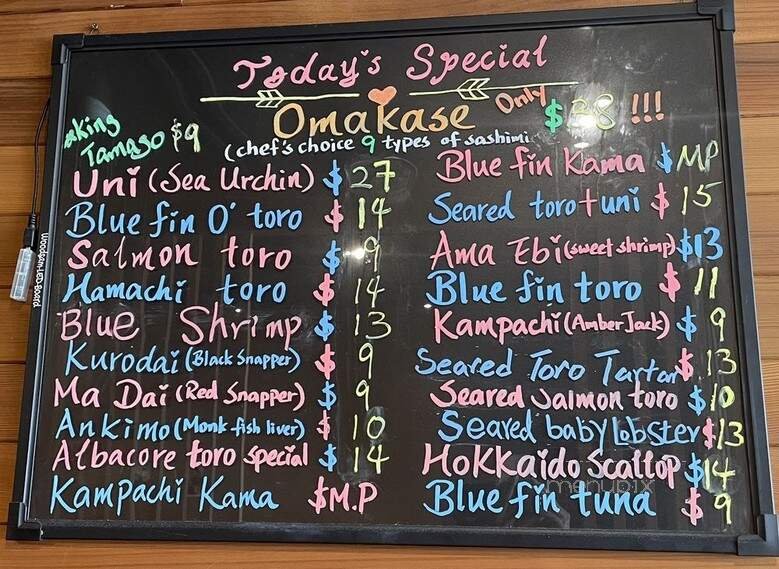 Today's Special
Omakase Only $38 !!!
(chef's choice 9 types of sashimi
King
Tamago $9
Uni (Sea Urchin) $ 27
Blue fin O' toro $ 14
Salmon toro $ 9
Hamachi toro $ 14
Blue Shrimp $ 13
Kurodai (Black Snapper) $ 9
Ma Dai (Red Snapper) $ 9
Ankimo (Monk-fish liver) $ 10
Albacore toro special $ 14
Kampachi Kama $M.P
Blue fin Kama $MP
Seared toro+uni $ 15
Ama Ebi (sweet shrimp) $13
Blue fin toro $ 11
Kampachi (Amber Jack) $ 9
Seared Toro Tartar $ 13
Seared Salmon toro $10
Seared baby Lobster $13
HoKKaido Scallop $14
Blue fin tuna $ 9
Woodsam LED Board
menupix